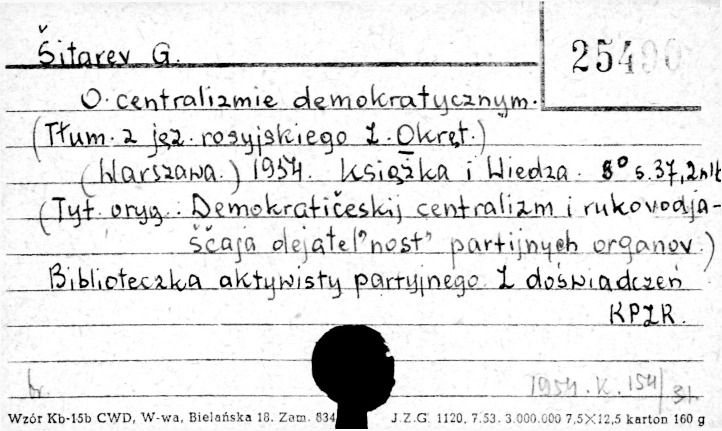 Šitarev G.
25490
O centralizmie demokratycznym.
(Tłum. z jęz. rosyjskiego Z. Okręt.)
(Warszawa.) 1954. Książka i Wiedza. 8° s. 37, 2 nlb
(Tyt. oryg.: Demokratičeskij centralizm i rukovodja-
ščaja dejatel"nost" partijnych organov.)
Biblioteczka aktywisty partyjnego Z doświadczeń
KPZR.
br.
1954. K. 154/31.
Wzór Kb-15b CWD, W-wa, Bielańska 18. Zam. 834
J.Z.G. 1120, 7.53. 3.000.000 7,5×12,5 karton 160 g